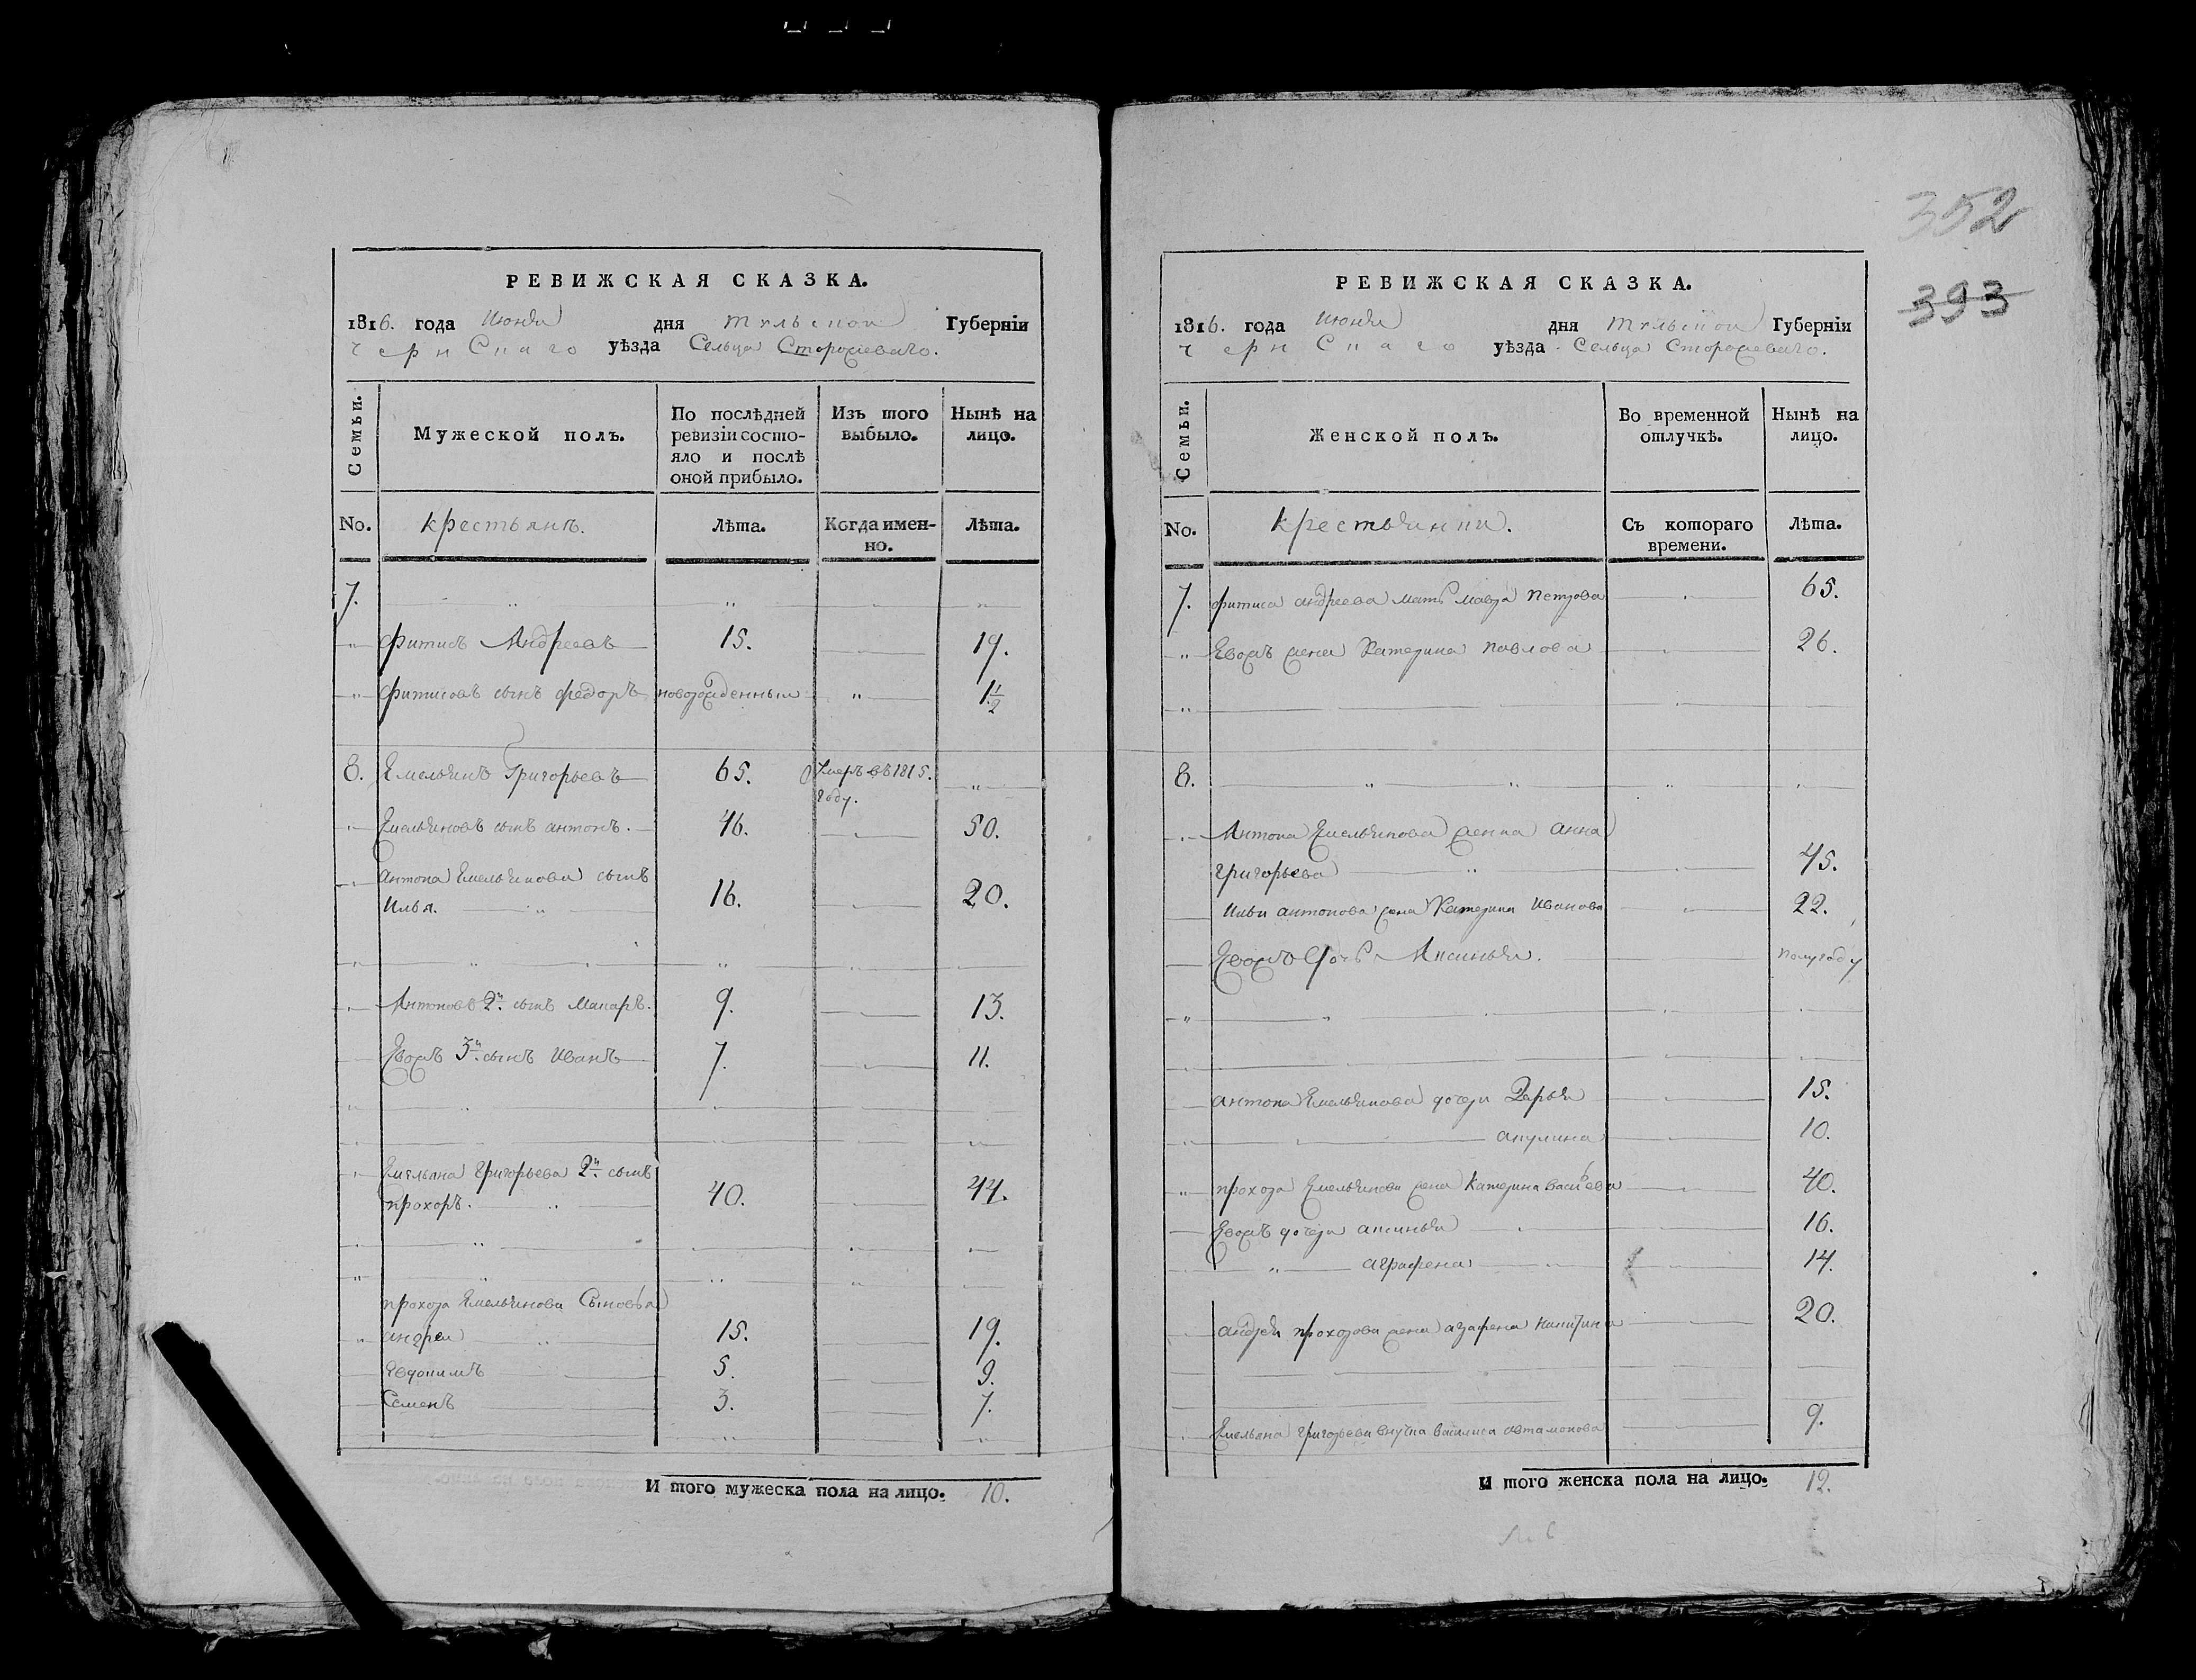 352
393
РЕВИЖСКАЯ СКАЗКА.
1816. года Июня дня Тульской Губерніи
Чернскаго уѣзда Сельца Сторожеваго.
Семьи.
Мужеской полъ.
По послѣдней ревизіи состояло и послѣ оной прибыло.
Изъ того выбыло.
Нынѣ на лицо.
No. крестьянъ. Лѣта. Когда именно. Лѣта.
7.
фитисъ Андреевъ 15. 19.
фитисовъ сынъ федоръ новорожденный 1 1/2
8. Емельянъ Григорьевъ 65. Умеръ въ 1815. году.
Емельяновъ сынъ антонъ. 46. 50.
антона Емельянова сынъ
Илья. 16. 20.
Антоновъ 2й. сынъ Макаръ. 9. 13.
Евожъ 3й. сынъ Иванъ 7. 11.
Емельяна Григорьева 2й. сынъ
прохоръ. 40. 44.
прохора Емельянова Сыновья
андреи 15. 19.
Евдокимъ 5. 9.
Семенъ 3. 7.
И того мужеска пола на лицо. 10.
РЕВИЖСКАЯ СКАЗКА.
1816. года Июня дня Тульской Губерніи
Чернскаго уѣзда Сельца Сторожеваго.
Семьи.
Женской полъ.
Во временной отлучкѣ.
Нынѣ на лицо.
No. крестьянки. Съ котораго времени. Лѣта.
7. фитиса андреева мать мавра петрова 65.
Евожъ жена Катерина павлова 26.
8.
Антона Емельянова женка анна
григорьева 45.
Ильи антонова жена Катерина Иванова 22.
Евожъ дочь Аксинья. полугоду
антона Емельянова дочери Дарья 15.
акулина 10.
прохора Емельянова жена Катерина васильева 40.
Евожъ дочери аксинья 16.
аграфена 14.
андрея прохорова жена аграфена никитина 20.
Емельяна григорьева внучка василиса автамонова 9.
И того женска пола на лицо. 12.